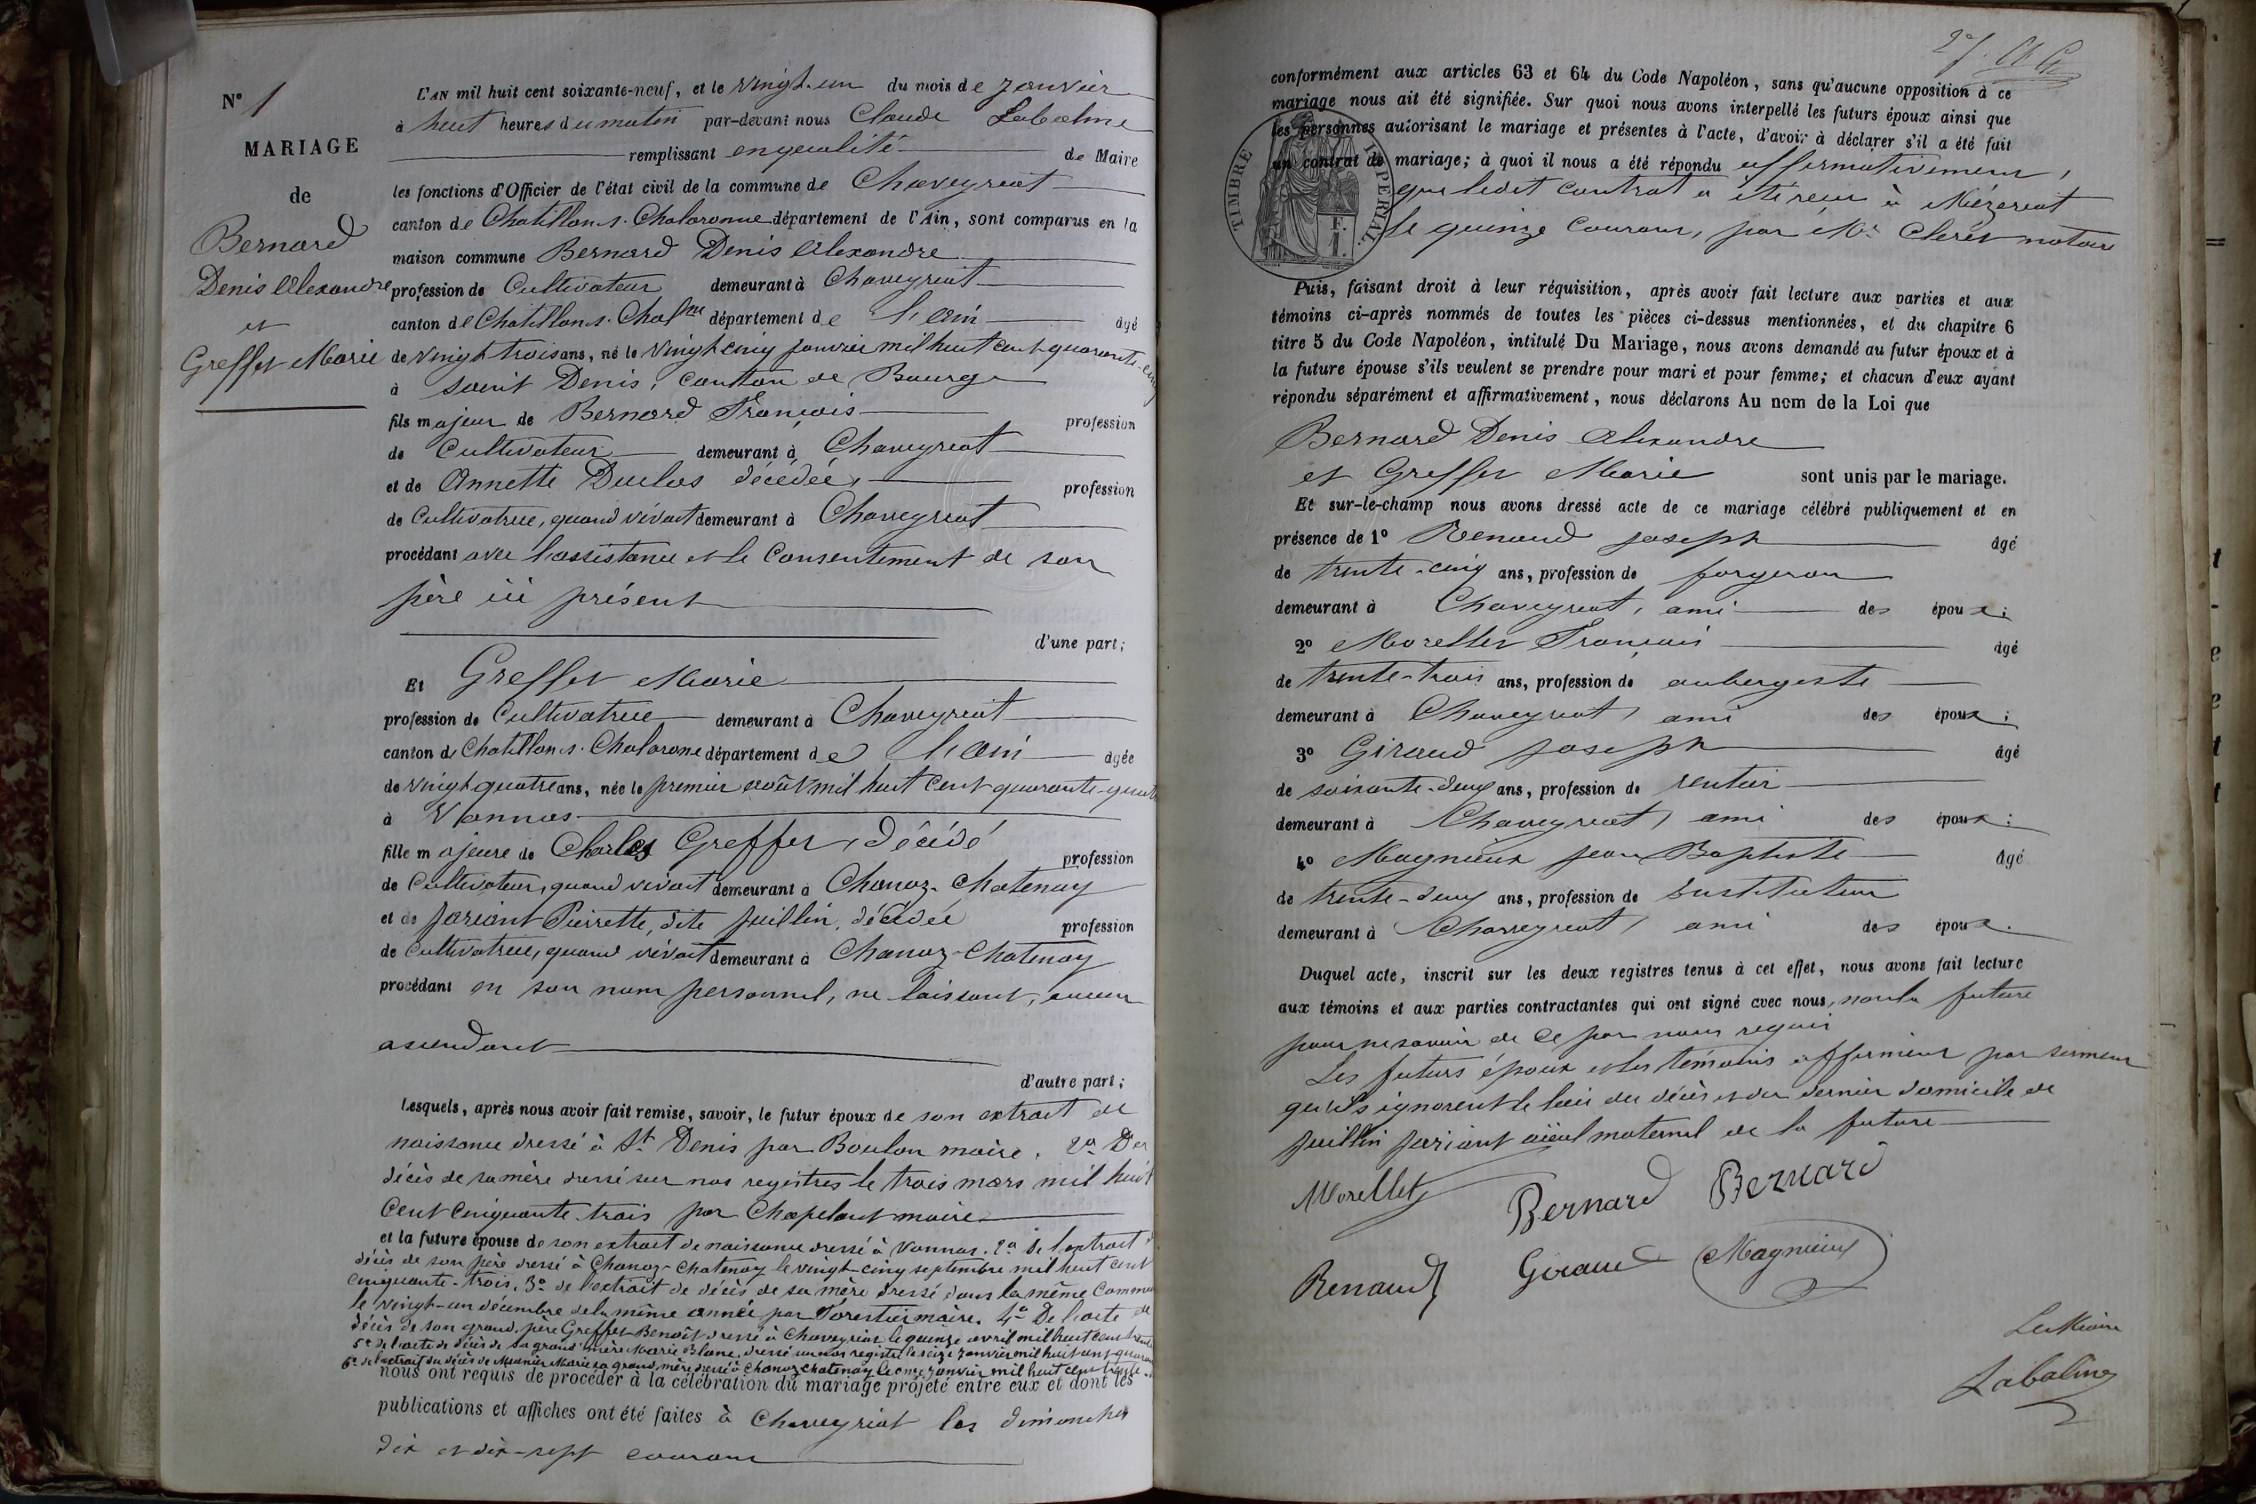 N° 1
MARIAGE
de
Bernard
Denis Alexandre
et
Greffet Marie
L'AN mil huit cent soixante-neuf, et le vingt-un du mois de Janvier
à huit heures du matin par-devant nous Claude Labalme
remplissant en qualité de Maire
les fonctions d'Officier de l'état civil de la commune de Chaveyriat
canton de Chatillon s. Chalaronne département de l'Ain, sont comparus en la
maison commune Bernard Denis Alexandre
profession de Cultivateur demeurant à Chaveyriat
canton de Chatillon s. Chal.ne département de l'ain âgé
de vingt trois ans, né le vingt cinq janvier mil huit cent quarante-cinq
à saint Denis, canton de Bourg
fils majeur de Bernard François profession
de Cultivateur demeurant à Chaveyriat
et de Annette Duclos décédée, profession
de Cultivatrice, quand vivait demeurant à Chaveyriat
procédant avec l'assistance et le Consentement de son
père ici présent
d'une part;
Et Greffet Marie
profession de Cultivatrice demeurant à Chaveyriat
canton de Chatillon s. Chalarone département de l'ain âgée
de vingt quatre ans, née le premier août mil huit cent quarante-quatre
à Vonnas
fille majeure de Charles Greffet, décédé profession
de Cultivateur, quand vivait demeurant à Chanoz-Chatenay
et de Joriant Pierrette, dite Juillin, décédée profession
de Cultivatrice, quand vivait demeurant à Chanoz-Chatenay
procédant en son nom personnel, ne laissant, aucun
ascendant
d'autre part;
Lesquels, après nous avoir fait remise, savoir, le futur époux de son extrait de
naissance dressé à St. Denis par Boulon maire. 2° Du
décès de sa mère dressé sur nos registres le trois mars mil huit
Cent Cinquante-trois par Chapelant maire
et la future épouse de son extrait de naissance dressé à Vonnas. 2° de l'extrait de
décès de son père dressé à Chanoz-Chatenay le vingt-cinq septembre mil huit cent
cinquante-trois. 3° de l'extrait de décès de sa mère dressé dans la même Commune
le vingt-un décembre de la même année par Forestier maire. 4° De l'acte de
décès de son grand-père Greffet Benoît dressé à Chaveyriat le quinze avril mil huit cent trente
5° de l'acte de décès de sa grand'mère Marie Blanc, dressé sur nos registres le seize janvier mil huit cent quarante
6° de l'extrait du décès de Meunier Marie sa grand'mère dressé à Chanoz chatenay le onze janvier mil huit cent trente
nous ont requis de procéder à la célébration du mariage projeté entre eux et dont les
publications et affiches ont été faites à Chaveyriat les dimanches
dix et dix-sept courant
conformément aux articles 63 et 64 du Code Napoléon, sans qu'aucune opposition à ce
mariage nous ait été signifiée. Sur quoi nous avons interpellé les futurs époux ainsi que
les personnes autorisant le mariage et présentes à l'acte, d'avoir à déclarer s'il a été fait
un contrat de mariage; à quoi il nous a été répondu affirmativement,
que ledit contrat a été reçu à Mézériat
le quinze Courant, par Me Cleret notaire
TIMBRE IMPERIAL.
F.
1.
Puis, faisant droit à leur réquisition, après avoir fait lecture aux parties et aux
témoins ci-après nommés de toutes les pièces ci-dessus mentionnées, et du chapitre 6
titre 5 du Code Napoléon, intitulé Du Mariage, nous avons demandé au futur époux et à
la future épouse s'ils veulent se prendre pour mari et pour femme; et chacun d'eux ayant
répondu séparément et affirmativement, nous déclarons Au nom de la Loi que
Bernard Denis Alexandre
et Greffet Marie sont unis par le mariage.
Et sur-le-champ nous avons dressé acte de ce mariage célébré publiquement et en
présence de 1° Renaud joseph âgé
de trente-cinq ans, profession de forgeron
demeurant à Chaveyriat, ami des époux;
2° Morellet François âgé
de trente-trois ans, profession de aubergiste
demeurant à Chaveyriat, ami des époux;
3° Giraud joseph âgé
de soixante-deux ans, profession de rentier
demeurant à Chaveyriat, ami des époux;
4° Magnieux jean Baptiste âgé
de trente-deux ans, profession de Instituteur
demeurant à Chaveyriat, ami des époux.
Duquel acte, inscrit sur les deux registres tenus à cet effet, nous avons fait lecture
aux témoins et aux parties contractantes qui ont signé avec nous, non la future
pour ne savoir de ce par nous requis
Les futurs époux et les témoins affirment par serment
qu'ils ignorent le lieu du décès et du dernier domicile de
Juillin Joriant aïeul maternel de la future
Morellet Bernard Bernard
Renaud Giraud Magnieux
Le Maire
Labalme